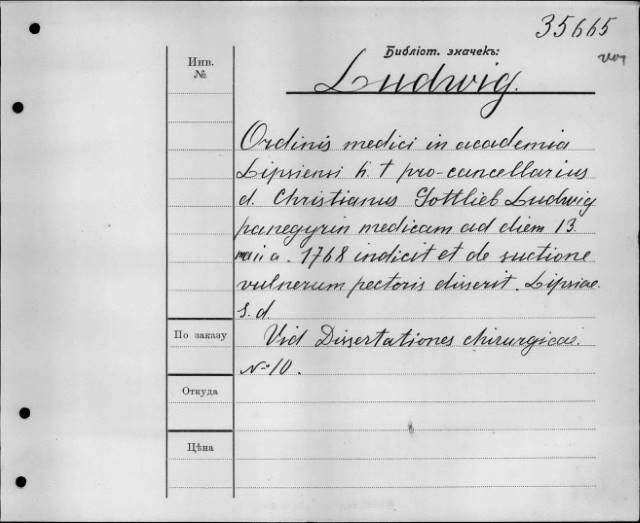 35665
Библіот. значекъ:
Инв.
№
Ludwig.
Ordinis medici in academia
Lipsiensi h. t pro-cancellarius
d. Christianus Gottlieb Ludwig
panegyrin medicam ad diem 13
maii a. 1768 indicit et de suctione
vulnerum pectoris disserit. Lipsiae
S. d.
По заказу
Vid Dissertationes chirurgicae.
№ 10.
Откуда
Цѣна